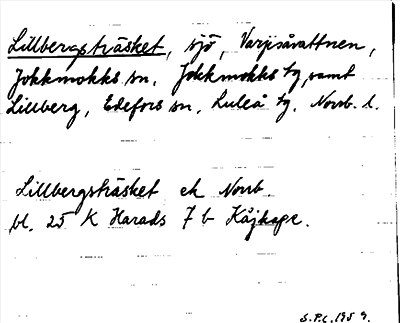 Lillbergsträsket, sjö, Varjisåvattnen,
Jokkmokks sn, Jokkmokks tg, samt
Lillberg, Edefors sn, Luleå tg. Norrb. l.
Lillbergsträsket ek Norrb.
bl. 25 K Harads 7 b Kåjkape.
S.P.L. 1959.